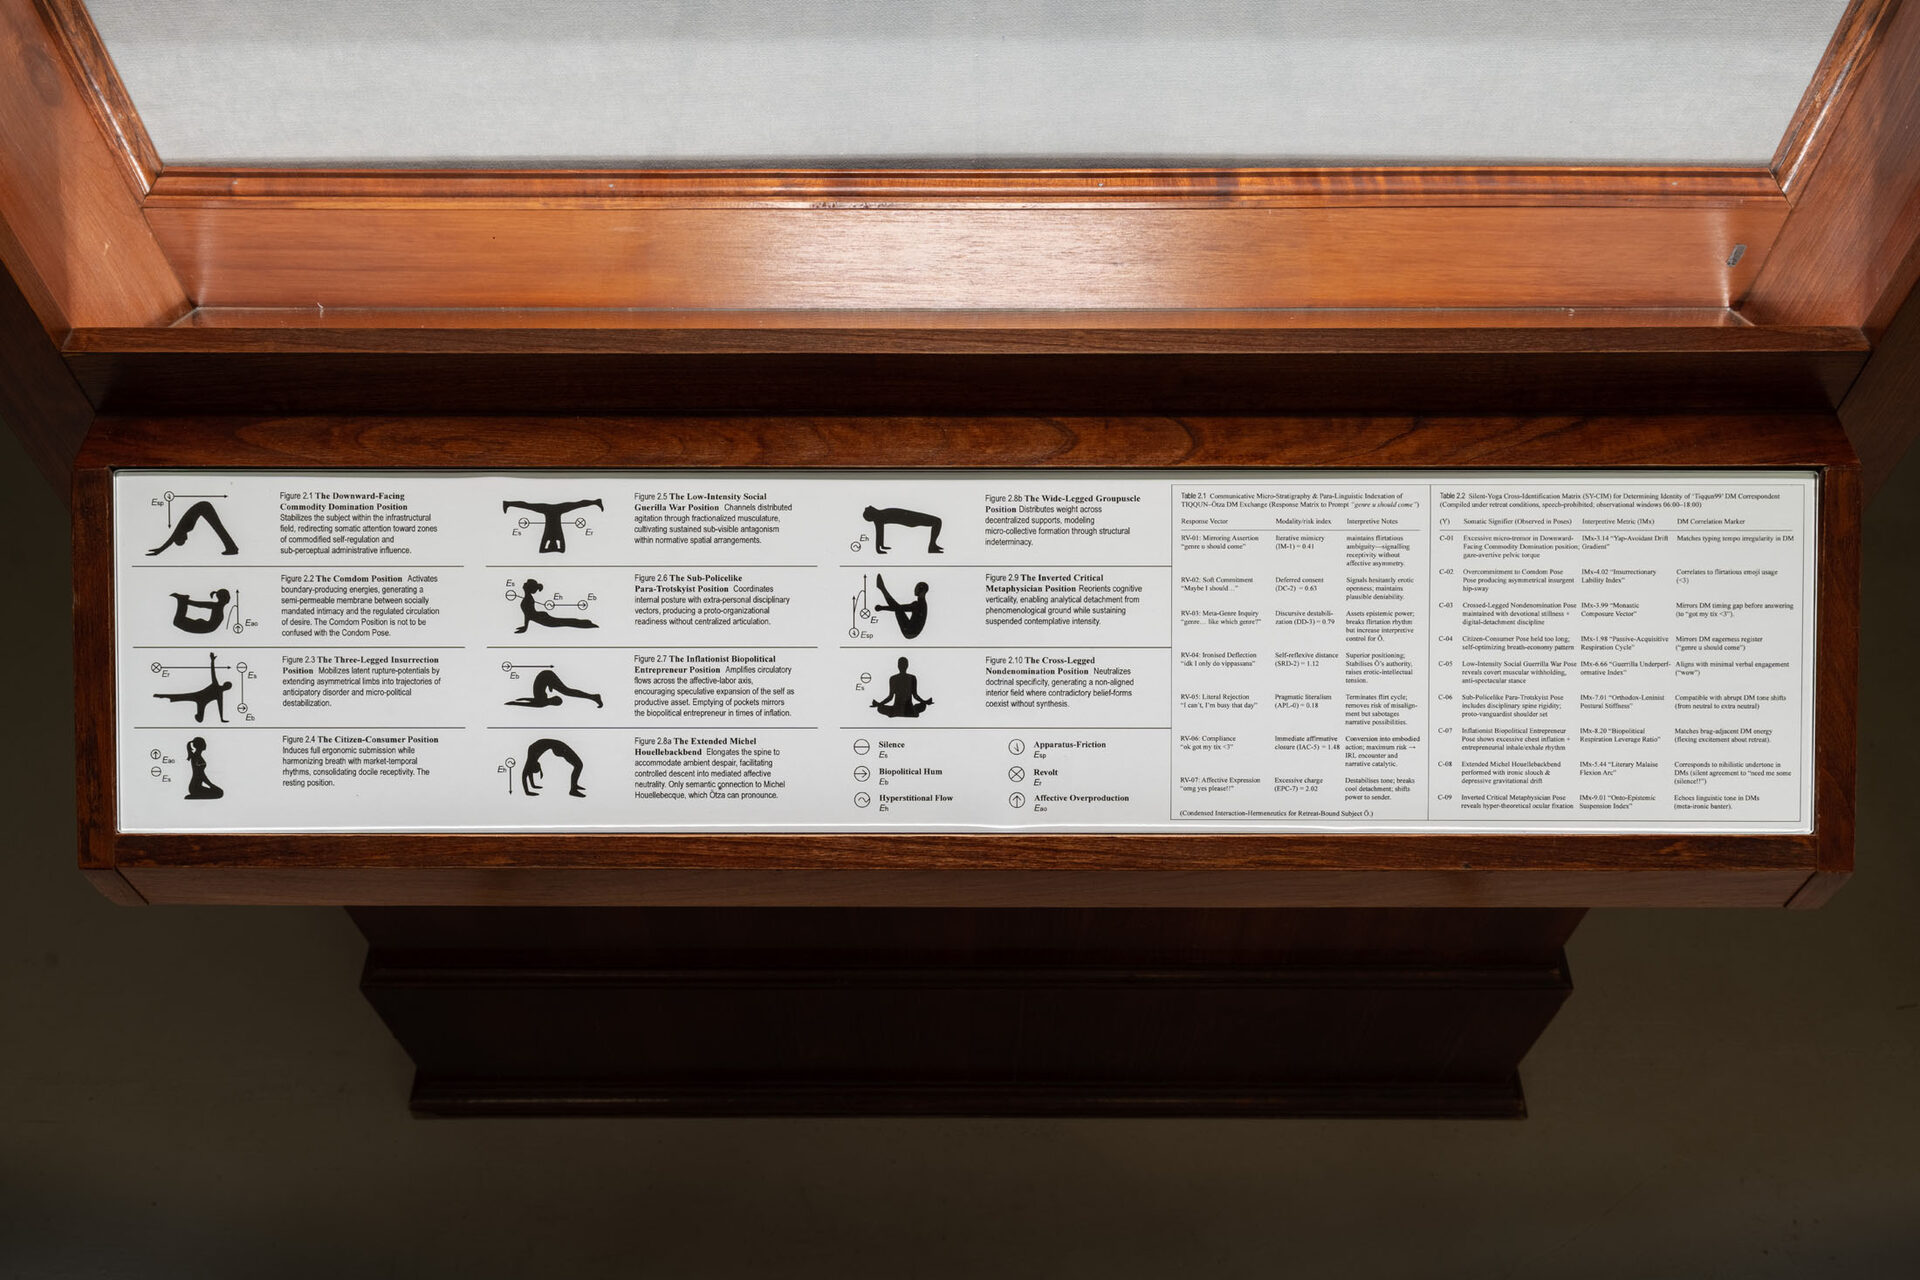 Esp
Figure 2.1 The Downward-Facing
Commodity Domination Position
Stabilizes the subject within the infrastructural
field, redirecting somatic attention toward zones
of commodified self-regulation and
sub-perceptual administrative influence.
Eao
Figure 2.2 The Comdom Position Activates
boundary-producing energies, generating a
semi-permeable membrane between socially
mandated intimacy and the regulated circulation
of desire. The Comdom Position is not to be
confused with the Condom Pose.
Er
Es
Eb
Figure 2.3 The Three-Legged Insurrection
Position Mobilizes latent rupture-potentials by
extending asymmetrical limbs into trajectories of
anticipatory disorder and micro-political
destabilization.
Eao
Es
Figure 2.4 The Citizen-Consumer Position
Induces full ergonomic submission while
harmonizing breath with market-temporal
rhythms, consolidating docile receptivity. The
resting position.
Es
Er
Figure 2.5 The Low-Intensity Social
Guerilla War Position Channels distributed
agitation through fractionalized musculature,
cultivating sustained sub-visible antagonism
within normative spatial arrangements.
Es
Eh
Eb
Figure 2.6 The Sub-Policelike
Para-Trotskyist Position Coordinates
internal posture with extra-personal disciplinary
vectors, producing a proto-organizational
readiness without centralized articulation.
Eb
Figure 2.7 The Inflationist Biopolitical
Entrepreneur Position Amplifies circulatory
flows across the affective-labor axis,
encouraging speculative expansion of the self as
productive asset. Emptying of pockets mirrors
the biopolitical entrepreneur in times of inflation.
Eh
Figure 2.8a The Extended Michel
Houellebackbend Elongates the spine to
accommodate ambient despair, facilitating
controlled descent into mediated affective
neutrality. Only semantic connection to Michel
Houellebecque, which Ötza can pronounce.
Eh
Figure 2.8b The Wide-Legged Groupuscle
Position Distributes weight across
decentralized supports, modeling
micro-collective formation through structural
indeterminacy.
Er
Esp
Figure 2.9 The Inverted Critical
Metaphysician Position Reorients cognitive
verticality, enabling analytical detachment from
phenomenological ground while sustaining
suspended contemplative intensity.
Es
Figure 2.10 The Cross-Legged
Nondenomination Position Neutralizes
doctrinal specificity, generating a non-aligned
interior field where contradictory belief-forms
coexist without synthesis.
Silence
Es
Biopolitical Hum
Eb
Hyperstitional Flow
Eh
Apparatus-Friction
Esp
Revolt
Er
Affective Overproduction
Eao
Table 2.1 Communicative Micro-Stratigraphy & Para-Linguistic Indexation of
TIQQUN–Ötza DM Exchange (Response Matrix to Prompt "genre u should come")
Response Vector Modality/risk index Interpretive Notes
RV-01: Mirroring Assertion
"genre u should come"
Iterative mimicry
(IM-1) = 0.41
maintains flirtatious
ambiguity—signalling
receptivity without
affective asymmetry.
RV-02: Soft Commitment
"Maybe I should..."
Deferred consent
(DC-2) = 0.63
Signals hesitantly erotic
openness; maintains
plausible deniability.
RV-03: Meta-Genre Inquiry
"genre... like which genre?"
Discursive destabili-
zation (DD-3) = 0.79
Assets epistemic power;
breaks flirtation rhythm
but increase interpretive
control for Ö.
RV-04: Ironised Deflection
"idk I only do vippassana"
Self-reflexive distance
(SRD-2) = 1.12
Superior positioning;
Stabilises Ö's authority,
raises erotic-intellectual
tension.
RV-05: Literal Rejection
"I can't, I'm busy that day"
Pragmatic literalism
(APL-0) = 0.18
Terminates flirt cycle;
removes risk of misalign-
ment but sabotages
narrative possibilities.
RV-06: Compliance
"ok got my tix <3"
Immediate affirmative
closure (IAC-5) = 1.48
Conversion into embodied
action; maximum risk →
IRL encounter and
narrative catalytic.
RV-07: Affective Expression
"omg yes please!!"
Excessive charge
(EPC-7) = 2.02
Destabilises tone; breaks
cool detachment; shifts
power to sender.
(Condensed Interaction-Hermeneutics for Retreat-Bound Subject Ö.)
Table 2.2 Silent-Yoga Cross-Identification Matrix (SY-CIM) for Determining Identity of 'Tiqqun99' DM Correspondent
(Compiled under retreat conditions, speech-prohibited; observational windows 06:00–18:00)
(Y) Somatic Signifier (Observed in Poses) Interpretive Metric (IMx) DM Correlation Marker
C-01 Excessive micro-tremor in Downward-
Facing Commodity Domination position;
gaze-avertive pelvic torque
IMx-3.14 "Yap-Avoidant Drift
Gradient"
Matches typing tempo irregularity in DM
C-02 Overcommitment to Comdom Pose
Pose producing asymmetrical insurgent
hip-sway
IMx-4.02 "Insurrectionary
Lability Index"
Correlates to flirtatious emoji usage
(<3)
C-03 Crossed-Legged Nondenomination Pose
maintained with devotional stillness +
digital-detachment discipline
IMx-3.99 "Monastic
Composure Vector"
Mirrors DM timing gap before answering
(to "got my tix <3").
C-04 Citizen-Consumer Pose held too long;
self-optimizing breath-economy pattern
IMx-1.98 "Passive-Acquisitive
Respiration Cycle"
Mirrors DM eagerness register
("genre u should come")
C-05 Low-Intensity Social Guerrilla War Pose
reveals covert muscular withholding,
anti-spectacular stance
IMx-6.66 "Guerrilla Underperf-
ormative Index"
Aligns with minimal verbal engagement
("wow")
C-06 Sub-Policelike Para-Trotskyist Pose
includes disciplinary spine rigidity;
proto-vanguardist shoulder set
IMx-7.01 "Orthodox-Leninist
Postural Stiffness"
Compatible with abrupt DM tone shifts
(from neutral to extra neutral)
C-07 Inflationist Biopolitical Entrepreneur
Pose shows excessive chest inflation +
entrepreneurial inhale/exhale rhythm
IMx-8.20 "Biopolitical
Respiration Leverage Ratio"
Matches brag-adjacent DM energy
(flexing excitement about retreat).
C-08 Extended Michel Houellebackbend
performed with ironic slouch &
depressive gravitational drift
IMx-5.44 "Literary Malaise
Flexion Arc"
Corresponds to nihilistic undertone in
DMs (silent agreement to "need me some
(silence!!")
C-09 Inverted Critical Metaphysician Pose
reveals hyper-theoretical ocular fixation
IMx-9.01 "Onto-Epistemic
Suspension Index"
Echoes linguistic tone in DMs
(meta-ironic banter).